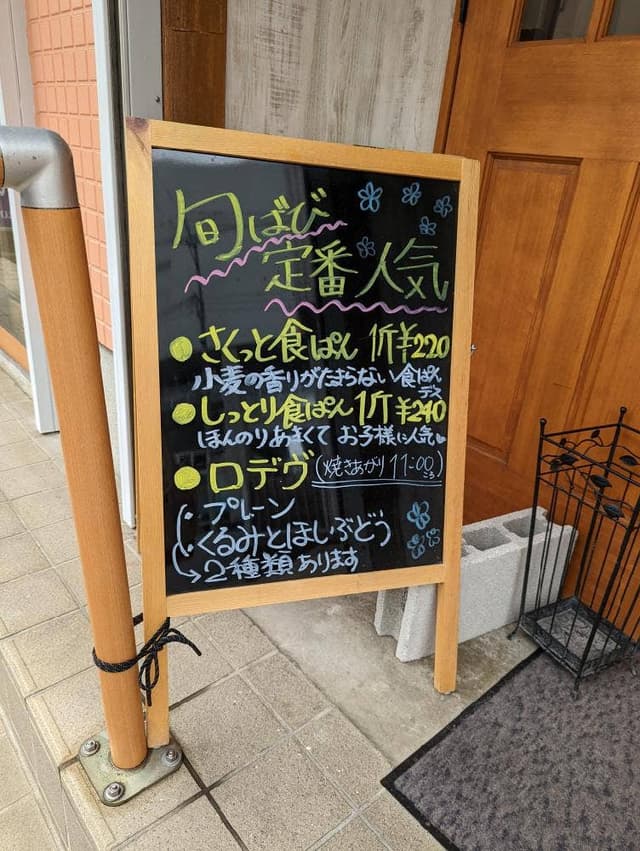 旬ばび
定番人気
● さくっと食ぱん 1斤¥220
小麦の香りがたまらない食ぱん
デス
● しっとり食ぱん 1斤¥240
ほんのりあまくて お子様に人気♥
● ロデヴ (焼きあがり 11:00ころ)
・プレーン
・くるみとほしぶどう
→2種類あります